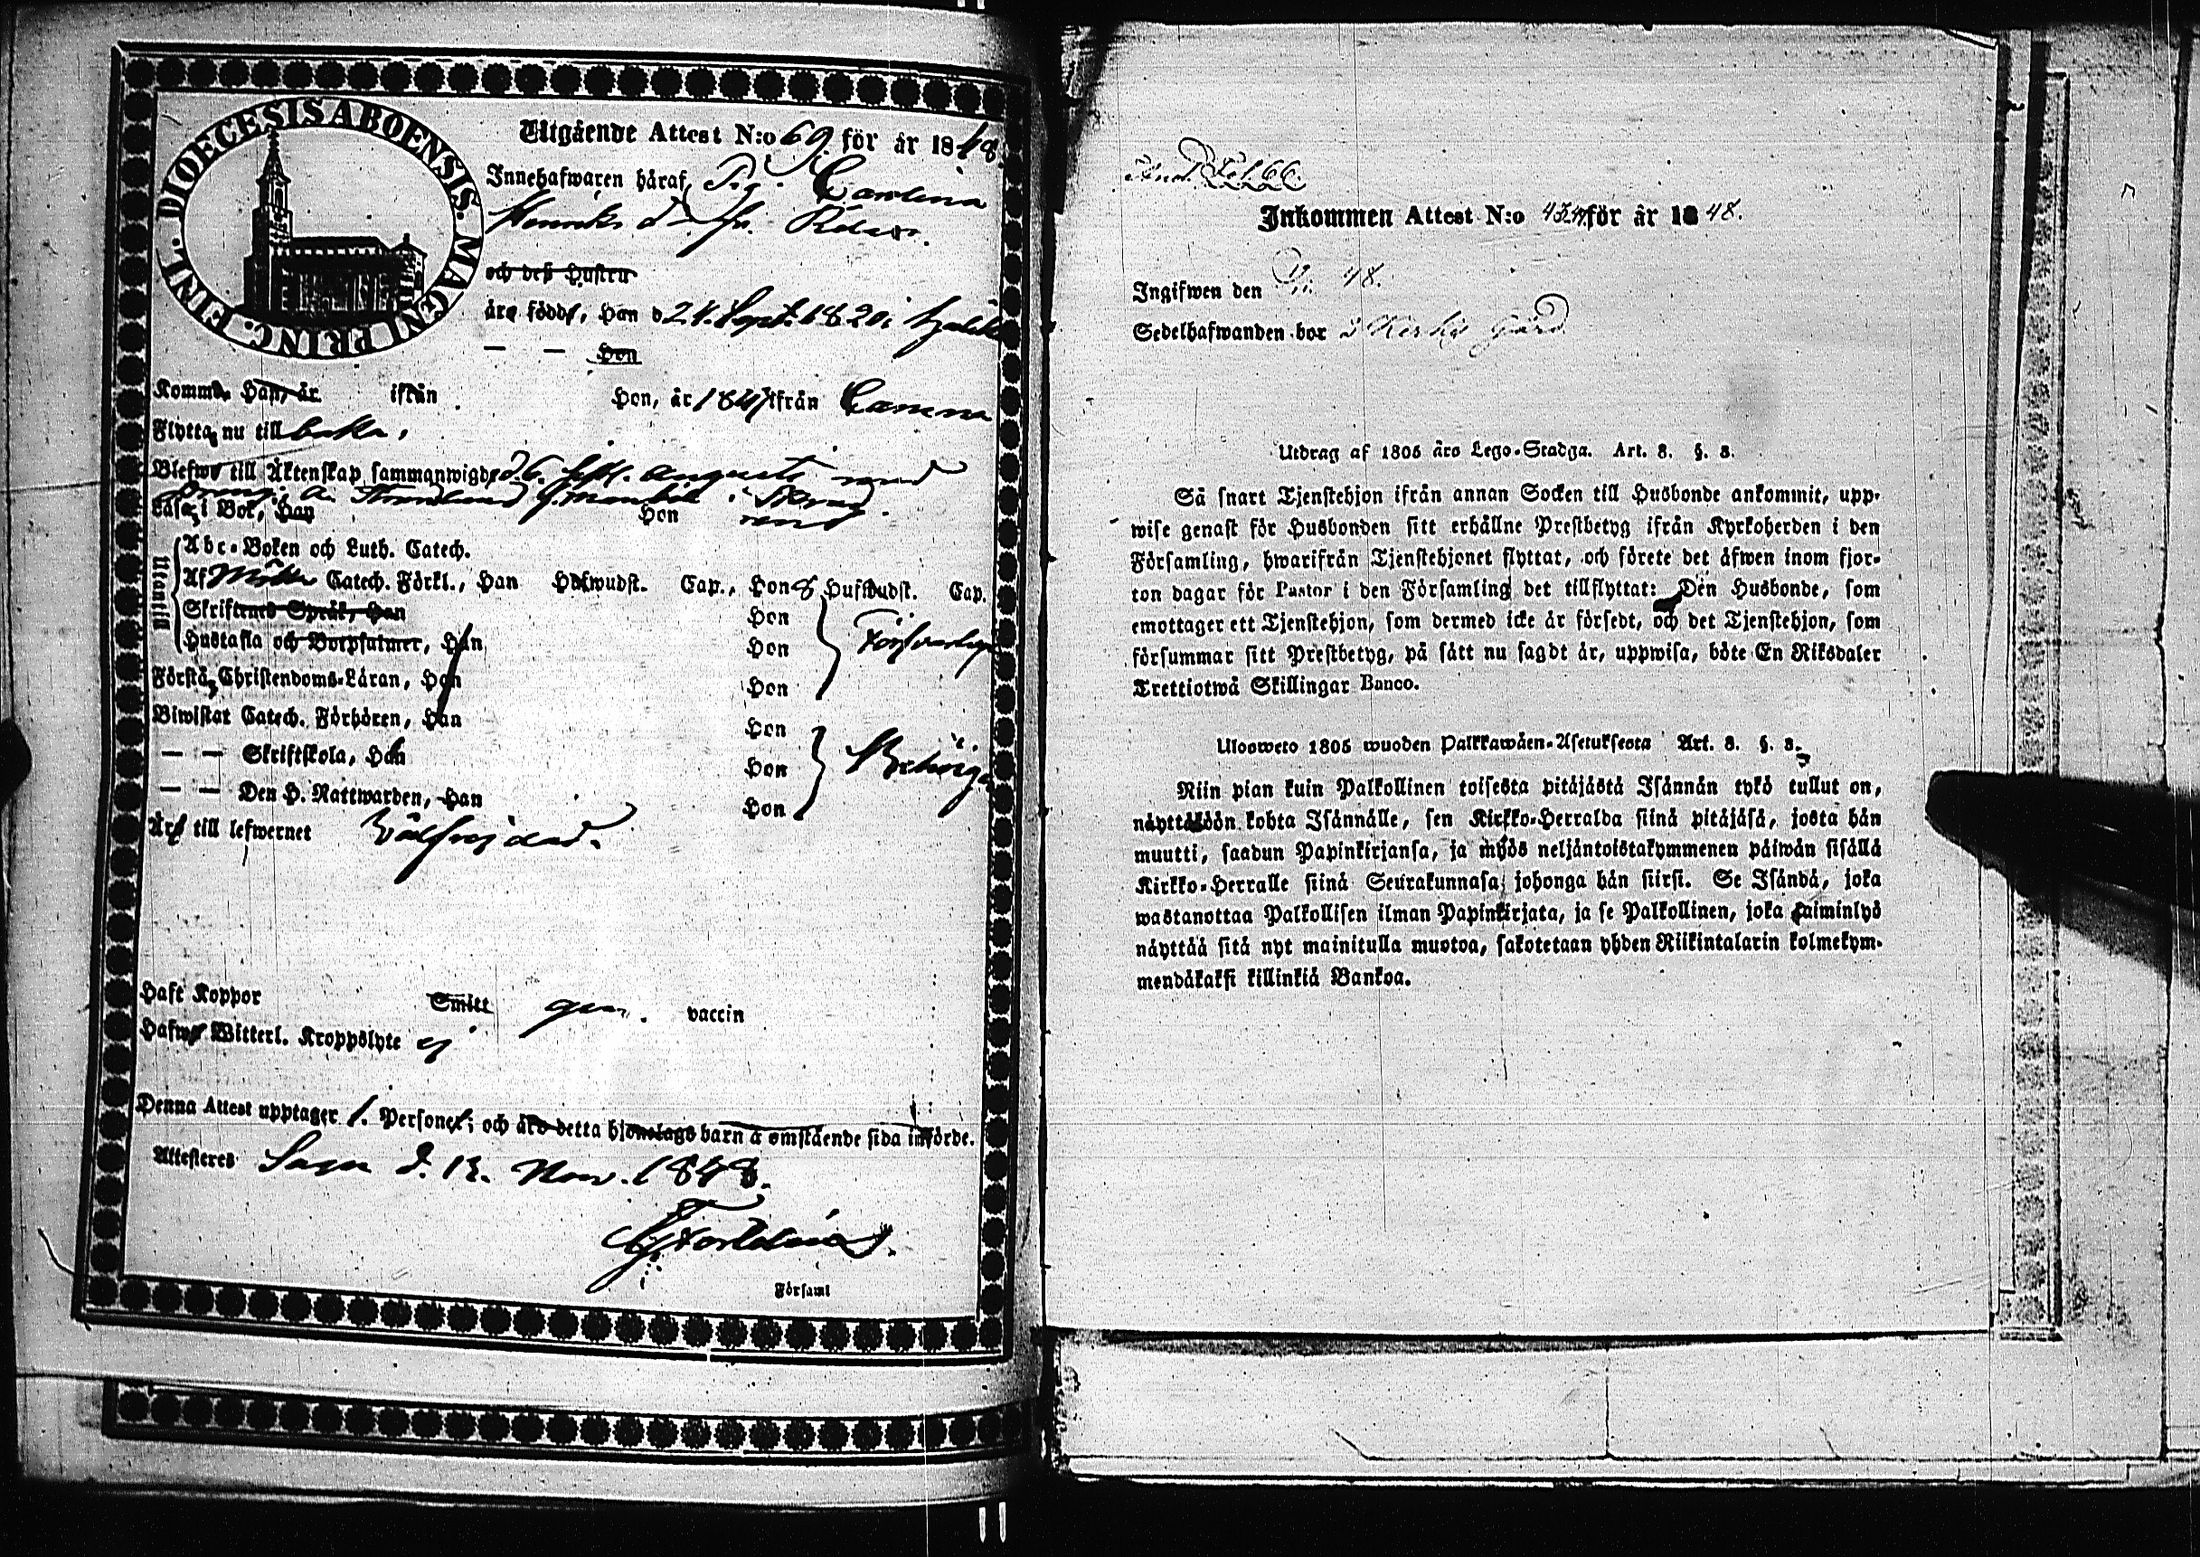 DIOECESIS ABOENSIS. MAGNI PRINC. FINL.
Utgående Attest N:o 69. för år 1848
Innehafwaren häraf, Pig. Carolina
Henriks d. fr.
och deß Hustru
äro född, Han d 24. Sept. 1820 i
— — Hon
Komma Han, år ifrån Hon, år 1847 ifrån
Flytta nu till baka,
Blefwo till Äktenskap sammanwigde d. 6. sistl. augusti med
dräng. i
Läsa i Bok, Han Hon
Utantill
Abc-Boken och Luth. Catech.
Af Catech. Förkl., Han Hufwudst. Cap., Hon 8 Hufwudst. Cap.
Skriftenes Språk, Han Hon
Hustafla och Botpsalmer, Han Hon Försvarlig
Förstå Christendoms-Läran, Han Hon
Biwistat Catech. Förhören, Han Hon
— — Skriftskola, Han Hon
— — Den H. Nattwarden, Han Hon
Äro till lefwernet Välfrejdad.
Haft Koppor Smitt gen. vaccin
Hafwa Witterl. Kroppslyte ej
Denna Attest upptager 1. Personer; och äro detta hjonelags barn å omstående sida införde.
Attesteras d. 12. Nov. 1848.
Församl
Inkommen Attest N:o för år 1848.
Ingifwen den 48.
Sedelhafwanden bor i gård
Utdrag af 1805 års Lego-Stadga. Art. 8. §. 3.
Så snart Tjenstehjon ifrån annan Socken till Husbonde ankommit, upp-
wise genast för Husbonden sitt erhållne Prestbetyg ifrån Kyrkoherden i den
Församling, hwarifrån Tjenstehjonet flyttat, och förete det äfwen inom fjor-
ton dagar för Pastor i den Församling det tillflyttat: Den Husbonde, som
emottager ett Tjenstehjon, som dermed icke är försedt, och det Tjenstehjon, som
försummar sitt Prestbetyg, på sätt nu sagdt är, uppwisa, böte En Riksdaler
Trettiotwå Skillingar Banco.
Ulosweto 1805 wuoden Palkkawäen-Asetuksesta Art. 8. §. 3.
Niin pian kuin Palkollinen toisesta pitäjästä Isännän tykö tullut on,
näyttäköön kohta Isännälle, sen Kirkko-Herralda siinä pitäjäsä, josta hän
muutti, saadun Papinkirjansa, ja myös neljäntoistakymmenen päiwän sisällä
Kirkko-Herralle siinä Seurakunnasa johonga hän siirsi. Se Isändä, joka
wastanottaa Palkollisen ilman Papinkirjata, ja se Palkollinen, joka laiminlyö
näyttää sitä nyt mainitulla muotoa, sakotetaan yhden Riikintalarin kolmekym-
mendäkaksi killinkiä Bankoa.